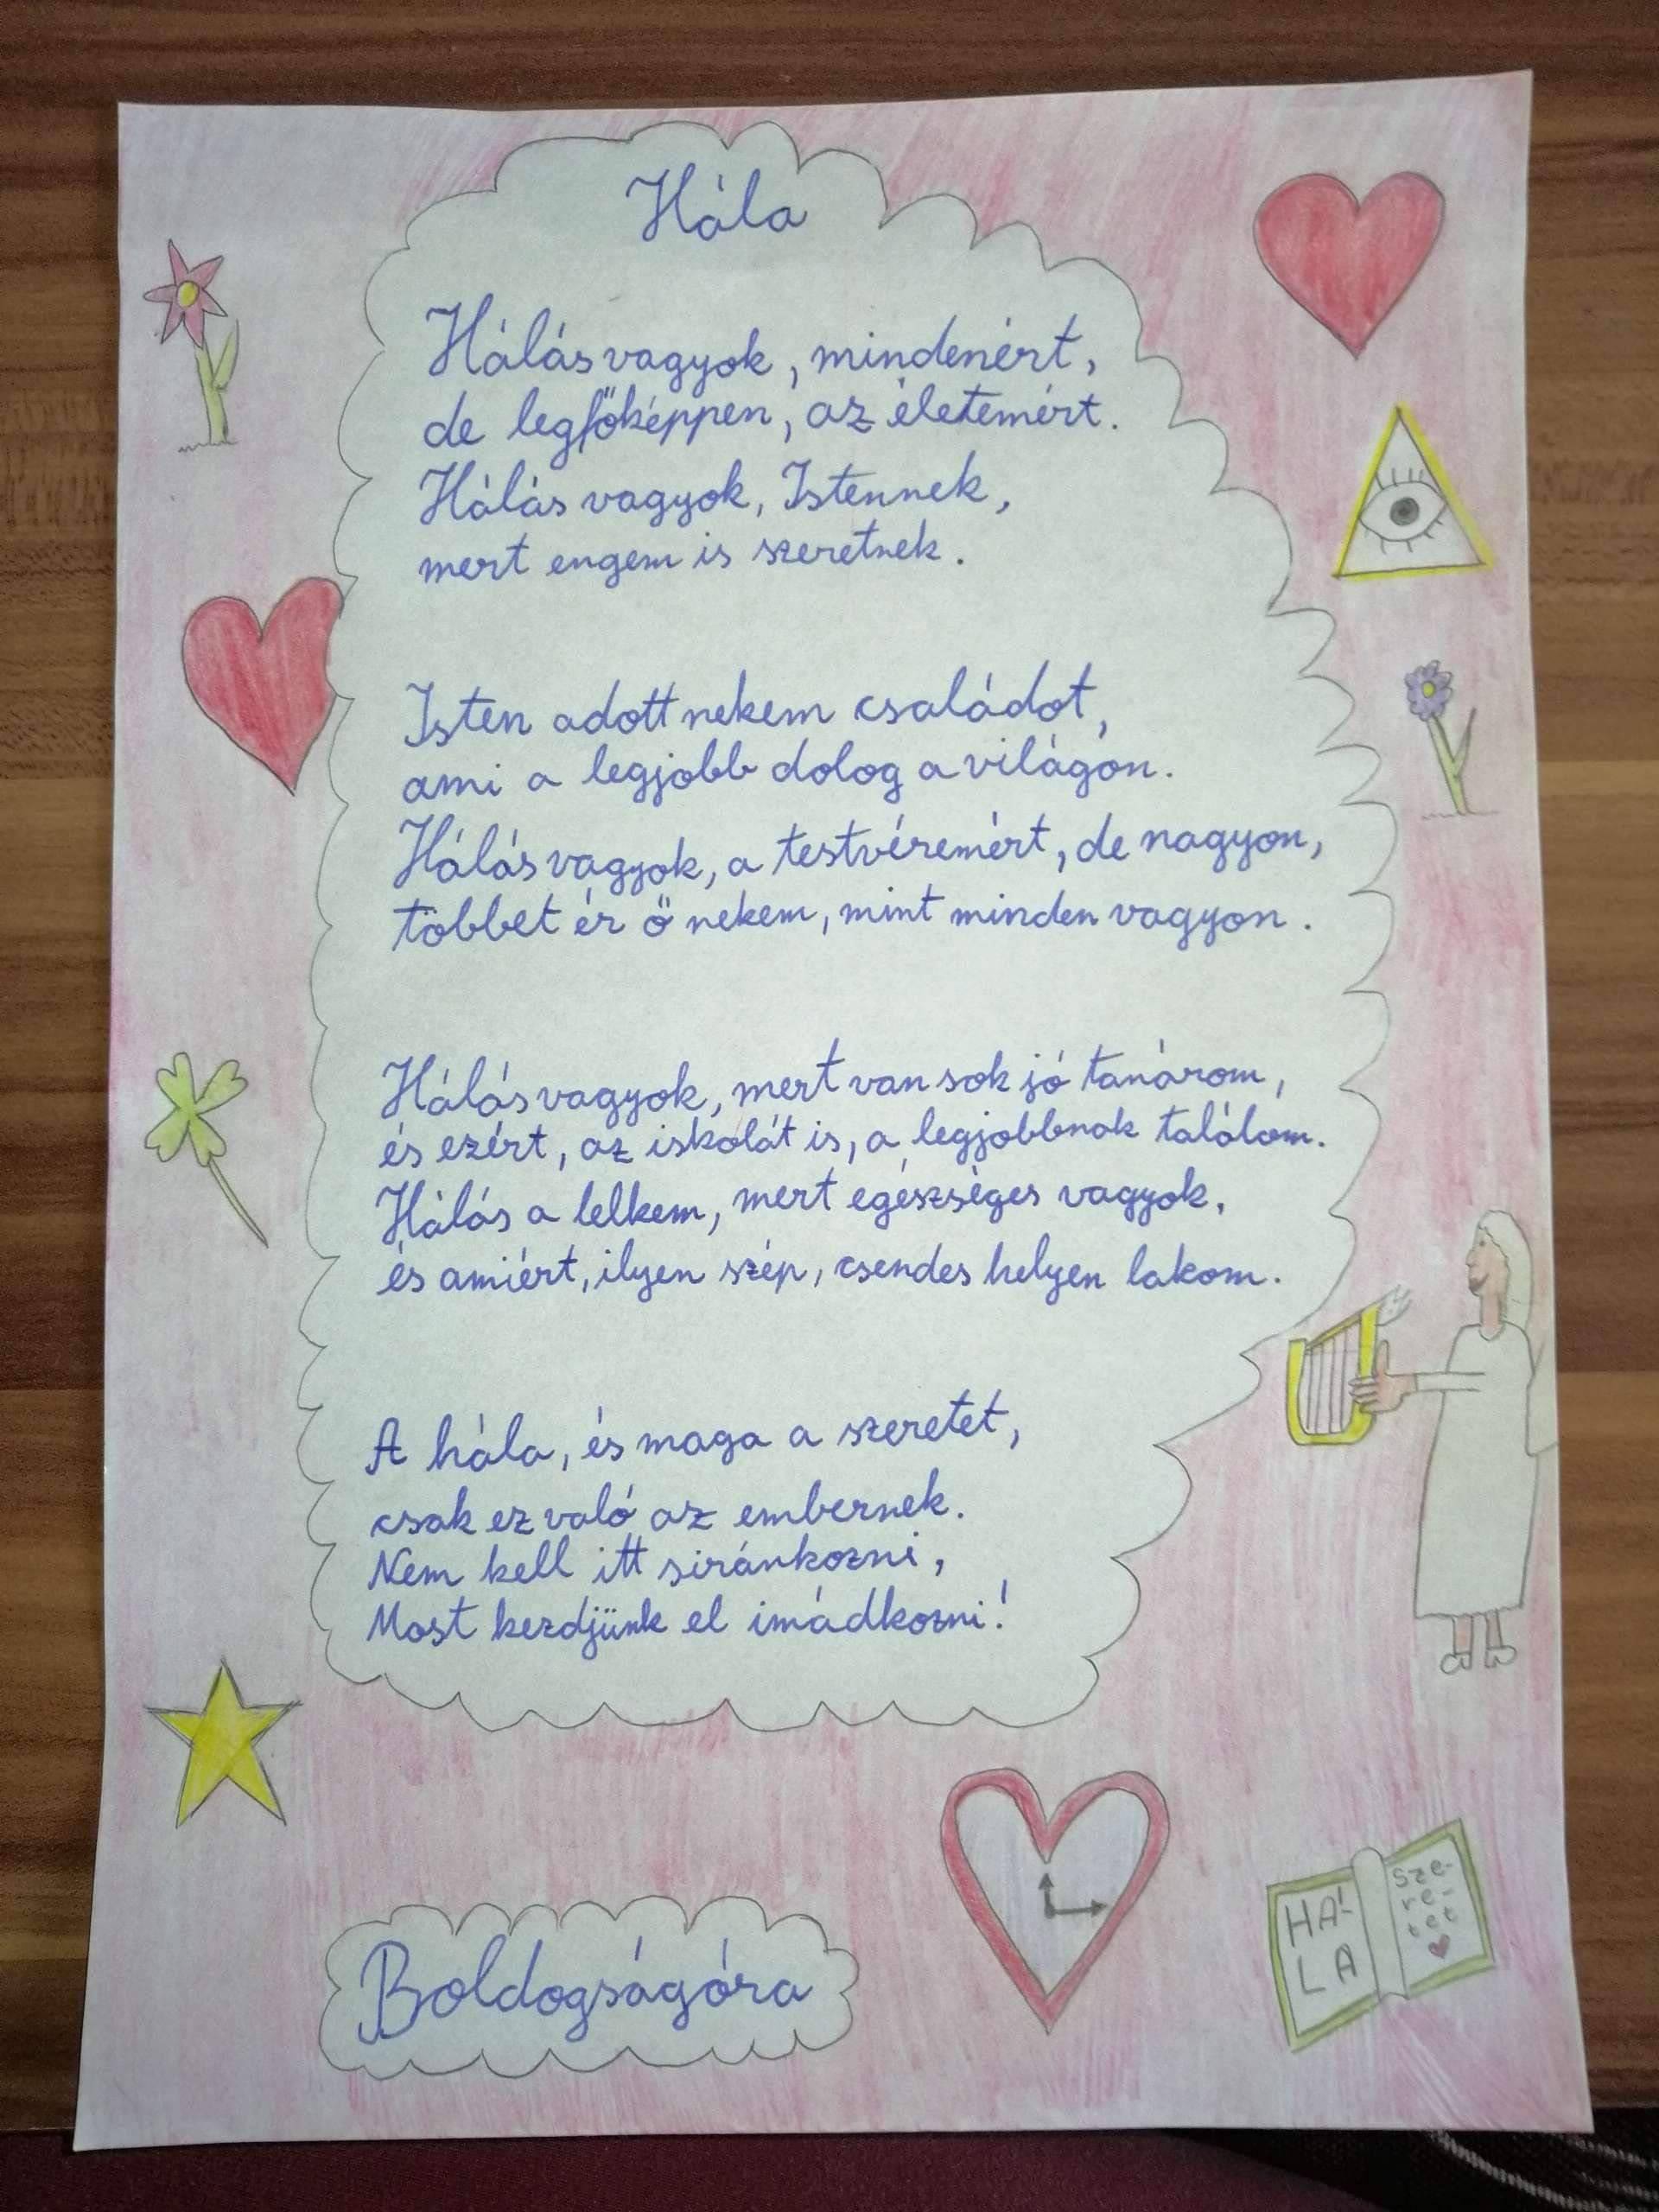 Hála
Hálás vagyok, mindenért,
de legfőképpen, az életemért.
Hálás vagyok, Istennek,
mert engem is szeretnek.
Isten adott nekem családot,
ami a legjobb dolog a világon.
Hálás vagyok, a testvéremért, de nagyon,
többet ér ő nekem, mint minden vagyon.
Hálás vagyok, mert van sok jó tanárom,
és ezért, az iskolát is, a legjobbnak találom.
Hálás a lelkem, mert egészséges vagyok,
és amiért, ilyen szép, csendes helyen lakom.
A hála, és maga a szeretet,
csak ez való az embernek.
Nem kell itt siránkozni,
Most kezdjünk el imádkozni!
Boldogságóra
HÁ-
LA
Sze-
re-
tet